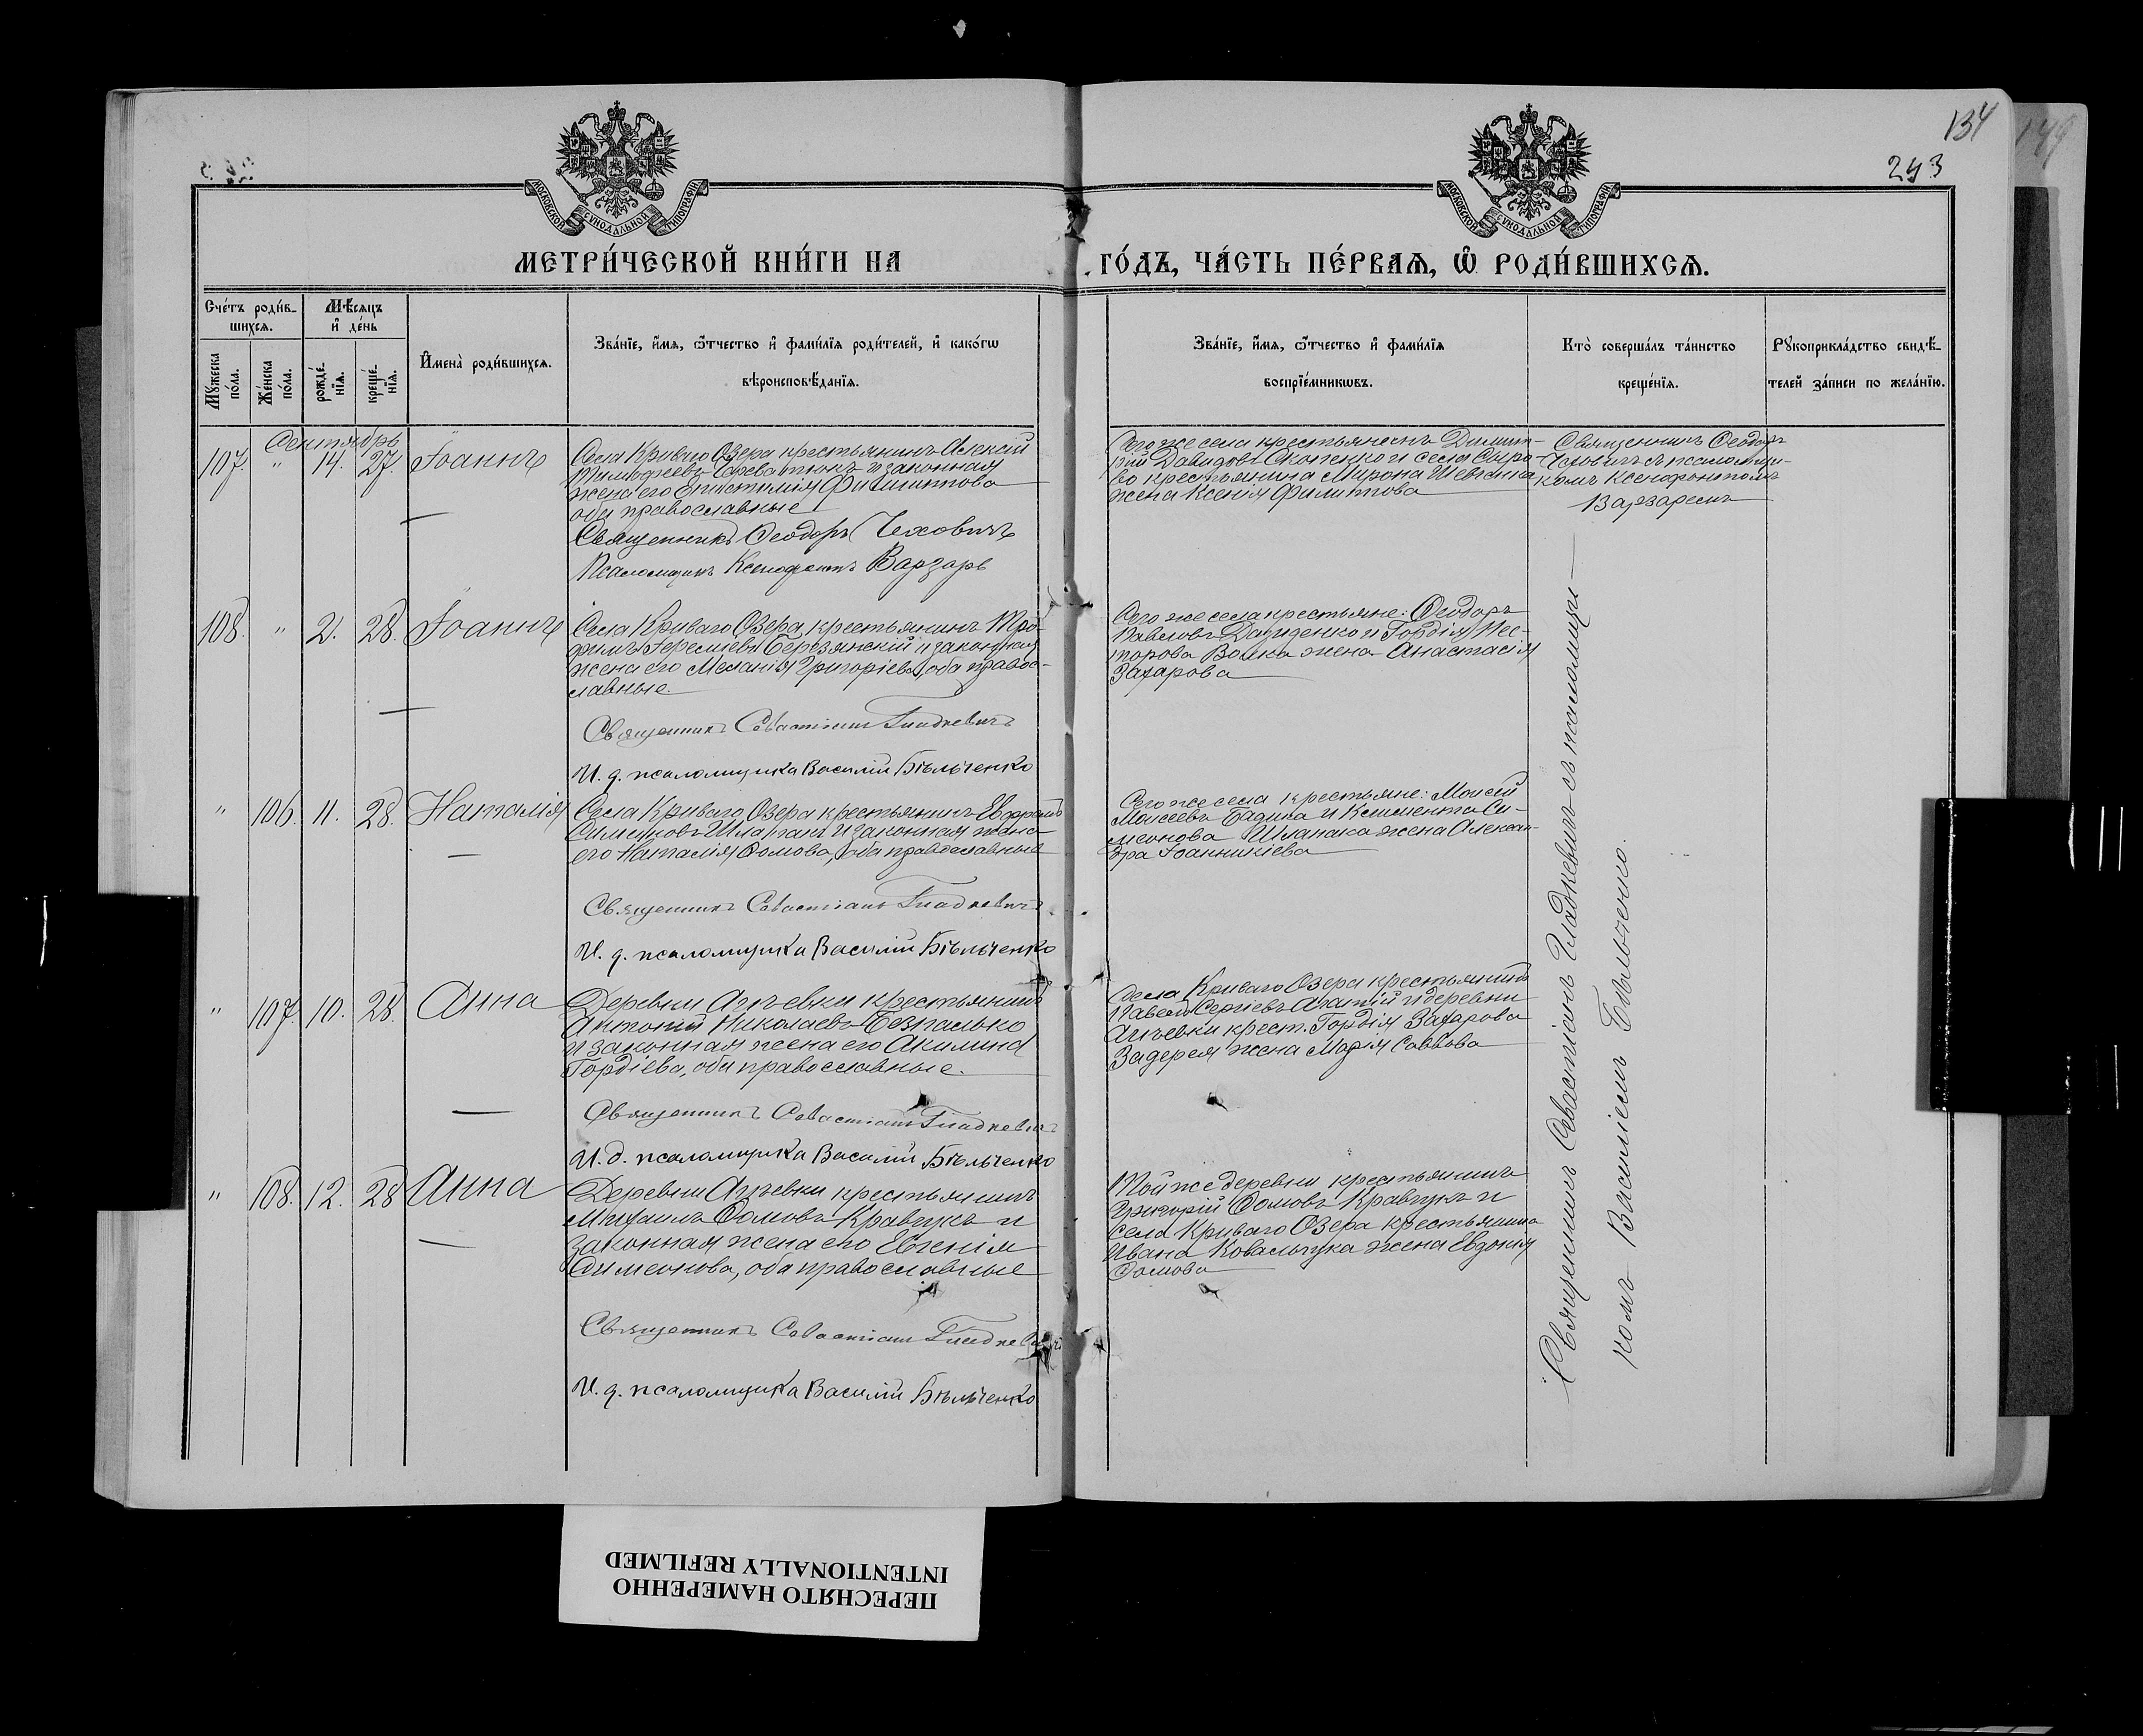 134
149
243
МОСКОВСКОЙ СѴНОДАЛЬНОЙ ТИПОГРАФІИ
МОСКОВСКОЙ СѴНОДАЛЬНОЙ ТИПОГРАФІИ
МЕТРИ́ЧЕСКОЙ КНИ́ГИ НА
ГО́ДЪ, ЧА́СТЬ ПЕ́РВАѦ, Ѡ҆ РОДИ́ВШИХСѦ.
Сче́тъ роди́в-
шихсѧ.
Мѣ́сѧцъ
и҆ де́нь
Мꙋжеска по́ла.
Же́нска по́ла.
рожде́-
нїѧ.
креще́-
нїѧ.
И҆мена̀ роди́вшихсѧ.
Зва́нїе, и҆́мѧ, ѻ҆́тчество и҆ фами́лїѧ роди́телей, и҆ како́гѡ
вѣроисповѣ́данїѧ.
Зва́нїе, и҆́мѧ, ѻ҆́тчество и҆ фами́лїѧ
воспрїе́мникѡвъ.
Кто̀ соверша́лъ та́инство
креще́нїѧ.
Рꙋкоприкла́дство свидѣ́-
телей за́писи по жела́нїю.
Сентябрь
107. " 14. 27. Іоаннъ
Села Криваго Озера крестьянинъ Алексій
Тимофеевъ и законная
жена его Епистимія Филиппова
оба православные
Священникъ Ѳеодоръ Чеховичъ
Псаломщикъ Ксенофонтъ Варзарь
Того же села крестьянинъ Димит-
рій Давидовъ Скопенко и села Сыро-
во крестьянина Мирона Шевченка
жена Ксенія Филиппова
Священникъ Ѳеодоръ
Чеховичъ съ псаломщи-
комъ Ксенофонтомъ
Варзаремъ
108. " 2. 28. Іоаннъ
Села Криваго Озера крестьянинъ Тро-
фимъ Іереміевъ Березянскій и законная
жена его Меланія Григоріева, оба правос-
лавные.
Священникъ Севастіанъ Гладкевичъ
И. д. псаломщика Василій Бѣльченко
Того же села крестьяне: Ѳеодоръ
Павловъ Давиденко и Гордія Нес-
торова Вовка жена Анастасія
Захарова
" 106. 11. 28. Наталія
Села Криваго Озера крестьянинъ
Симеоновъ и законная жена
его Наталія Ѳомова, оба православные
Священникъ Севастіанъ Гладкевичъ
И. д. псаломщика Василій Бѣльченко
Того же села крестьяне: Моисей
Моисеевъ и Климента Си-
меонова жена Алексан-
дра Іоанникіева
" 107. 10. 28. Анна
Деревни крестьянинъ
Антоній Николаевъ Безпалько
и законная жена его Акилина
Гордіева, оба православные.
Священникъ Севастіанъ Гладкевичъ
И. д. псаломщика Василій Бѣльченко
Села Криваго Озера крестьянинъ
Павелъ Сергіевъ и деревни
крест. Гордія Захарова
Задерея жена Марія Саввова
" 108. 12. 28 Анна
Деревни крестьянинъ
Михаилъ Ѳомовъ Кравчукъ и
законная жена его Евгенія
Симеонова, оба православные
Священникъ Севастіанъ Гладкевичъ
И. д. псаломщика Василій Бѣльченко
Той же деревни крестьянинъ
Григорій Ѳомовъ Кравчукъ и
села Криваго Озера крестьянина
Ивана Ковальчука жена Евдокія
Ѳомова
Священникъ Севастіанъ Гладкевичъ съ псаломщи-
комъ Василіемъ Бѣльченко.
ПЕРЕСНЯТО НАМЕРЕННО
INTENTIONALLY REFILMED